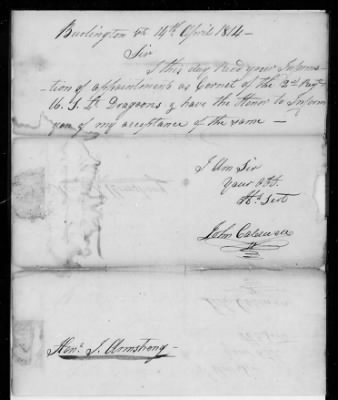 Burlington vt 14th April 1814
Sir
I this day Recd your Informa-
tion of appointment as Cornet of the 2d Regt
U. S. Lt Dragoons & have the Honor to Inform
you of my acceptance of the same —
I Am Sir
Your Obt.
Hb. Sert
John
Honl. J. Armstrong